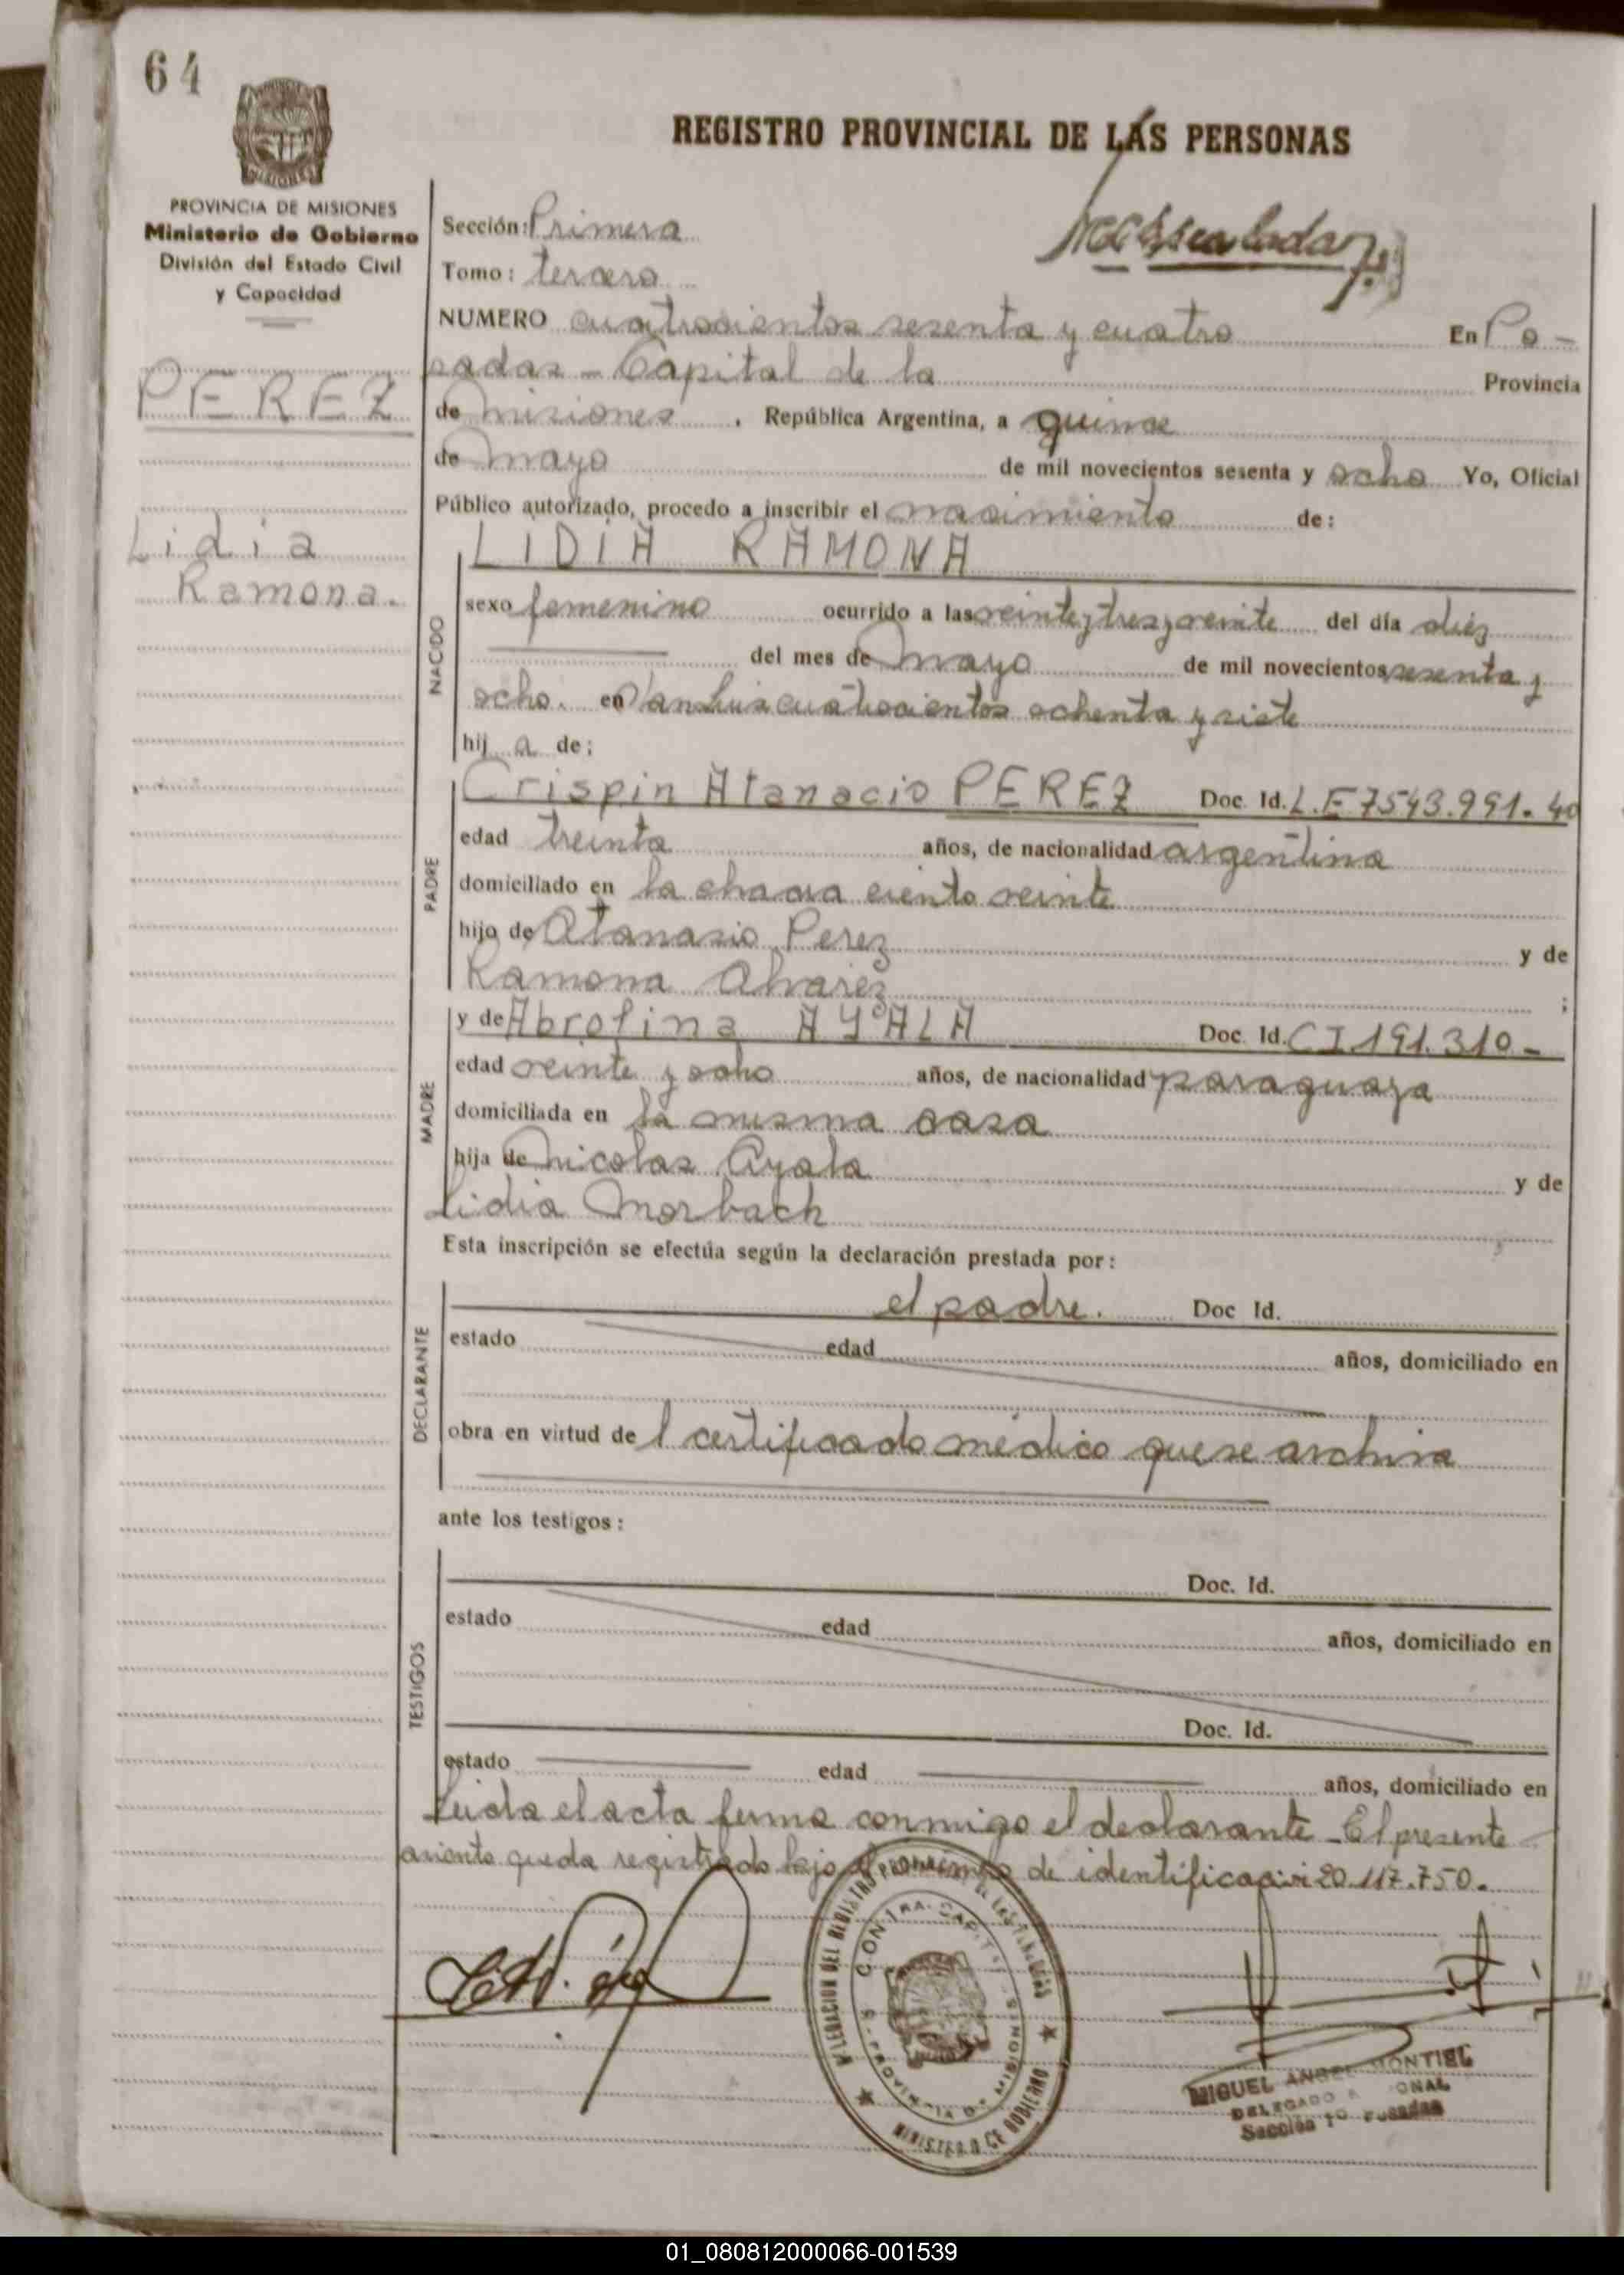 64
REGISTRO PROVINCIAL DE LAS PERSONAS
PROVINCIA DE MISIONES
Ministerio de Gobierno
División del Estado Civil
y Capacidad
PEREZ
Lidia
Ramona.
Sección: Primera
Tomo: tercero
NUMERO cuatrocientos sesenta y cuatro En Po-
sadas - Capital de la Provincia
de Misiones, República Argentina, a quince
de mayo de mil novecientos sesenta y ocho Yo, Oficial
Público autorizado, procedo a inscribir el nacimiento de:
NACIDO
LIDIA RAMONA
sexo femenino ocurrido a las veinte y tres y veinte del día diez
del mes de Mayo de mil novecientos sesenta y
ocho. en San Luis cuatrocientos ochenta y siete
hij a de:
PADRE
Crispin Atanacio PEREZ Doc. Id. L.E 7543.991.-
edad treinta años, de nacionalidad argentina
domiciliado en la chacra ciento veinte
hijo de Atanasio Perez y de
Ramona Alvarez ;
MADRE
y de Abrolina AYALA Doc. Id. CI 191.310-
edad veinte y ocho años, de nacionalidad paraguaya
domiciliada en la misma casa
hija de Nicolas Ayala y de
Lidia Morbach
Esta inscripción se efectúa según la declaración prestada por:
DECLARANTE
el padre. Doc Id.
estado edad años, domiciliado en
obra en virtud de l certificado médico que se archiva
ante los testigos:
TESTIGOS
Doc. Id.
estado edad años, domiciliado en
Doc. Id.
estado edad años, domiciliado en
Leida el acta firma conmigo el declarante - El presente
asiento queda registrado bajo de identificación 20.117.750.
MIGUEL ANGEL MONTIEL
Sección 1º Posadas
MINISTERIO DE GOBIERNO
01_080812000066-001539